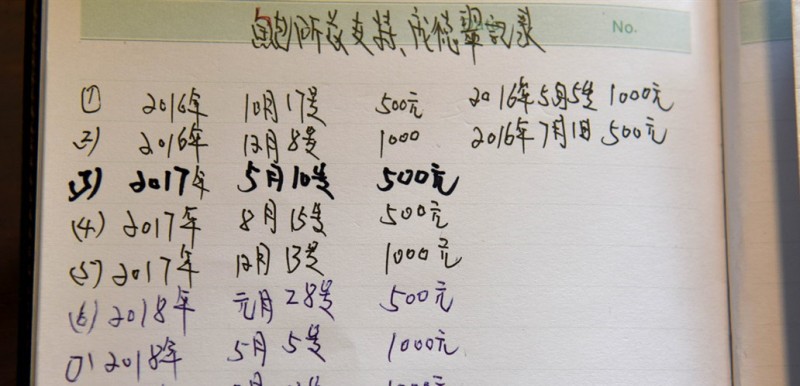 鲍所长支持、庞德翠记录
No.
① 2016年 10月17号 500元 2016年5月5号 1000元
2) 2016年 12月8号 1000 2016年7月1日 500元
(3) 2017年 5月10号 500元
(4) 2017年 8月15号 500元
(5) 2017年 12月13号 1000元
(6) 2018年 元月28号 500元
(7) 2018年 5月5号 1000元